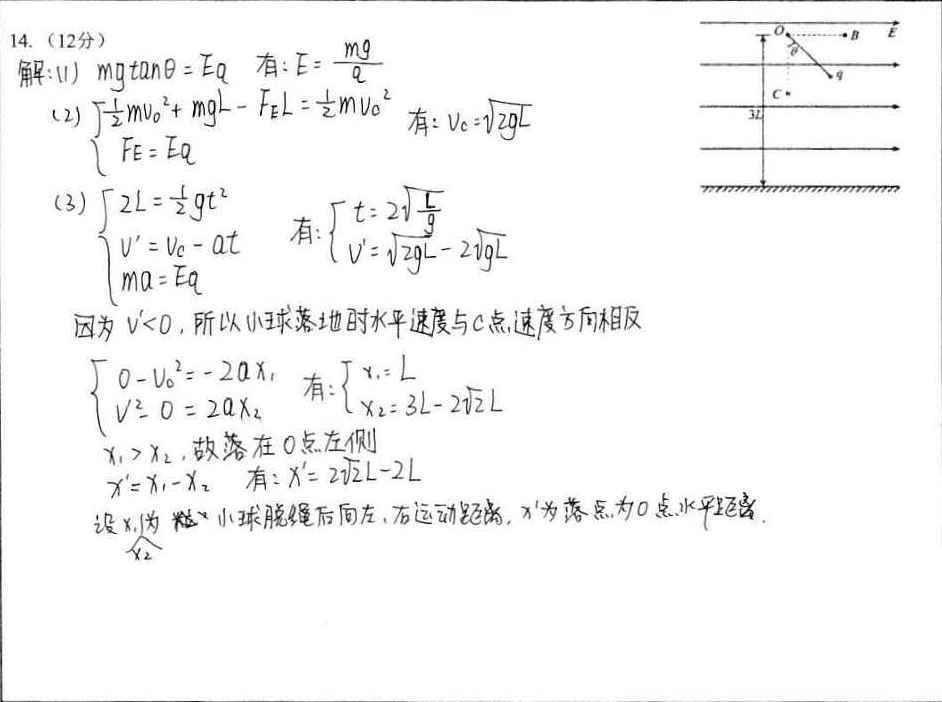 14. （12分）
解:(1) mgtanθ = Eq 有: E = mg/q
(2) { ½mv₀² + mgL - F_E L = ½mv₀² 有: v_c = √2gL
F_E = Eq
(3) { 2L = ½gt² 有: { t = 2√(L/g)
v' = v_c - at v' = √2gL - 2√gL
ma = Eq
因为 v'<0, 所以小球落地时水平速度与C点速度方向相反
{ 0 - v₀² = -2ax₁ 有: { x₁ = L
v² - 0 = 2ax₂ x₂ = 3L - 2√2L
x₁ > x₂, 故落在O点左侧
x' = x₁ - x₂ 有: x' = 2√2L - 2L
设x₁, x₂为小球脱绳后向左、右运动距离, x'为落点为O点水平距离.
O B E
θ
q
C
3L